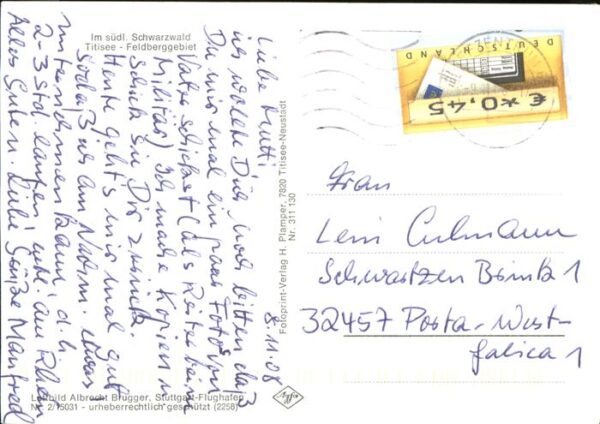 Im südl. Schwarzwald
Titisee - Feldberggebiet
8.11.08
Liebe Mutti!
ich wollte Dich noch bitten, daß
Du mir mal ein paar Fotos von
Vater schickst (als Reiter beim
Militär) Ich mache Kopien u.
schicke sie Dir zurück.
Heute geht's mir mal gut
sodaß ich am Nachm. etwas
unternehmen kann d.h.
2-3 Std. laufen evtl. am Rhein
Alles Gute u. Liebe Grüße Manfred
Luftbild Albrecht Brugger, Stuttgart-Flughafen
Nr. 2/15031 - urheberrechtlich geschützt (2258)
Fotoprint-Verlag H. Plamper, 7820 Titisee-Neustadt
Nr. 311 130
DEUTSCHLAND
€*0,45
Frau
Leni Culmann
Schwartzen Brink 1
32457 Porta-West-
falica 1